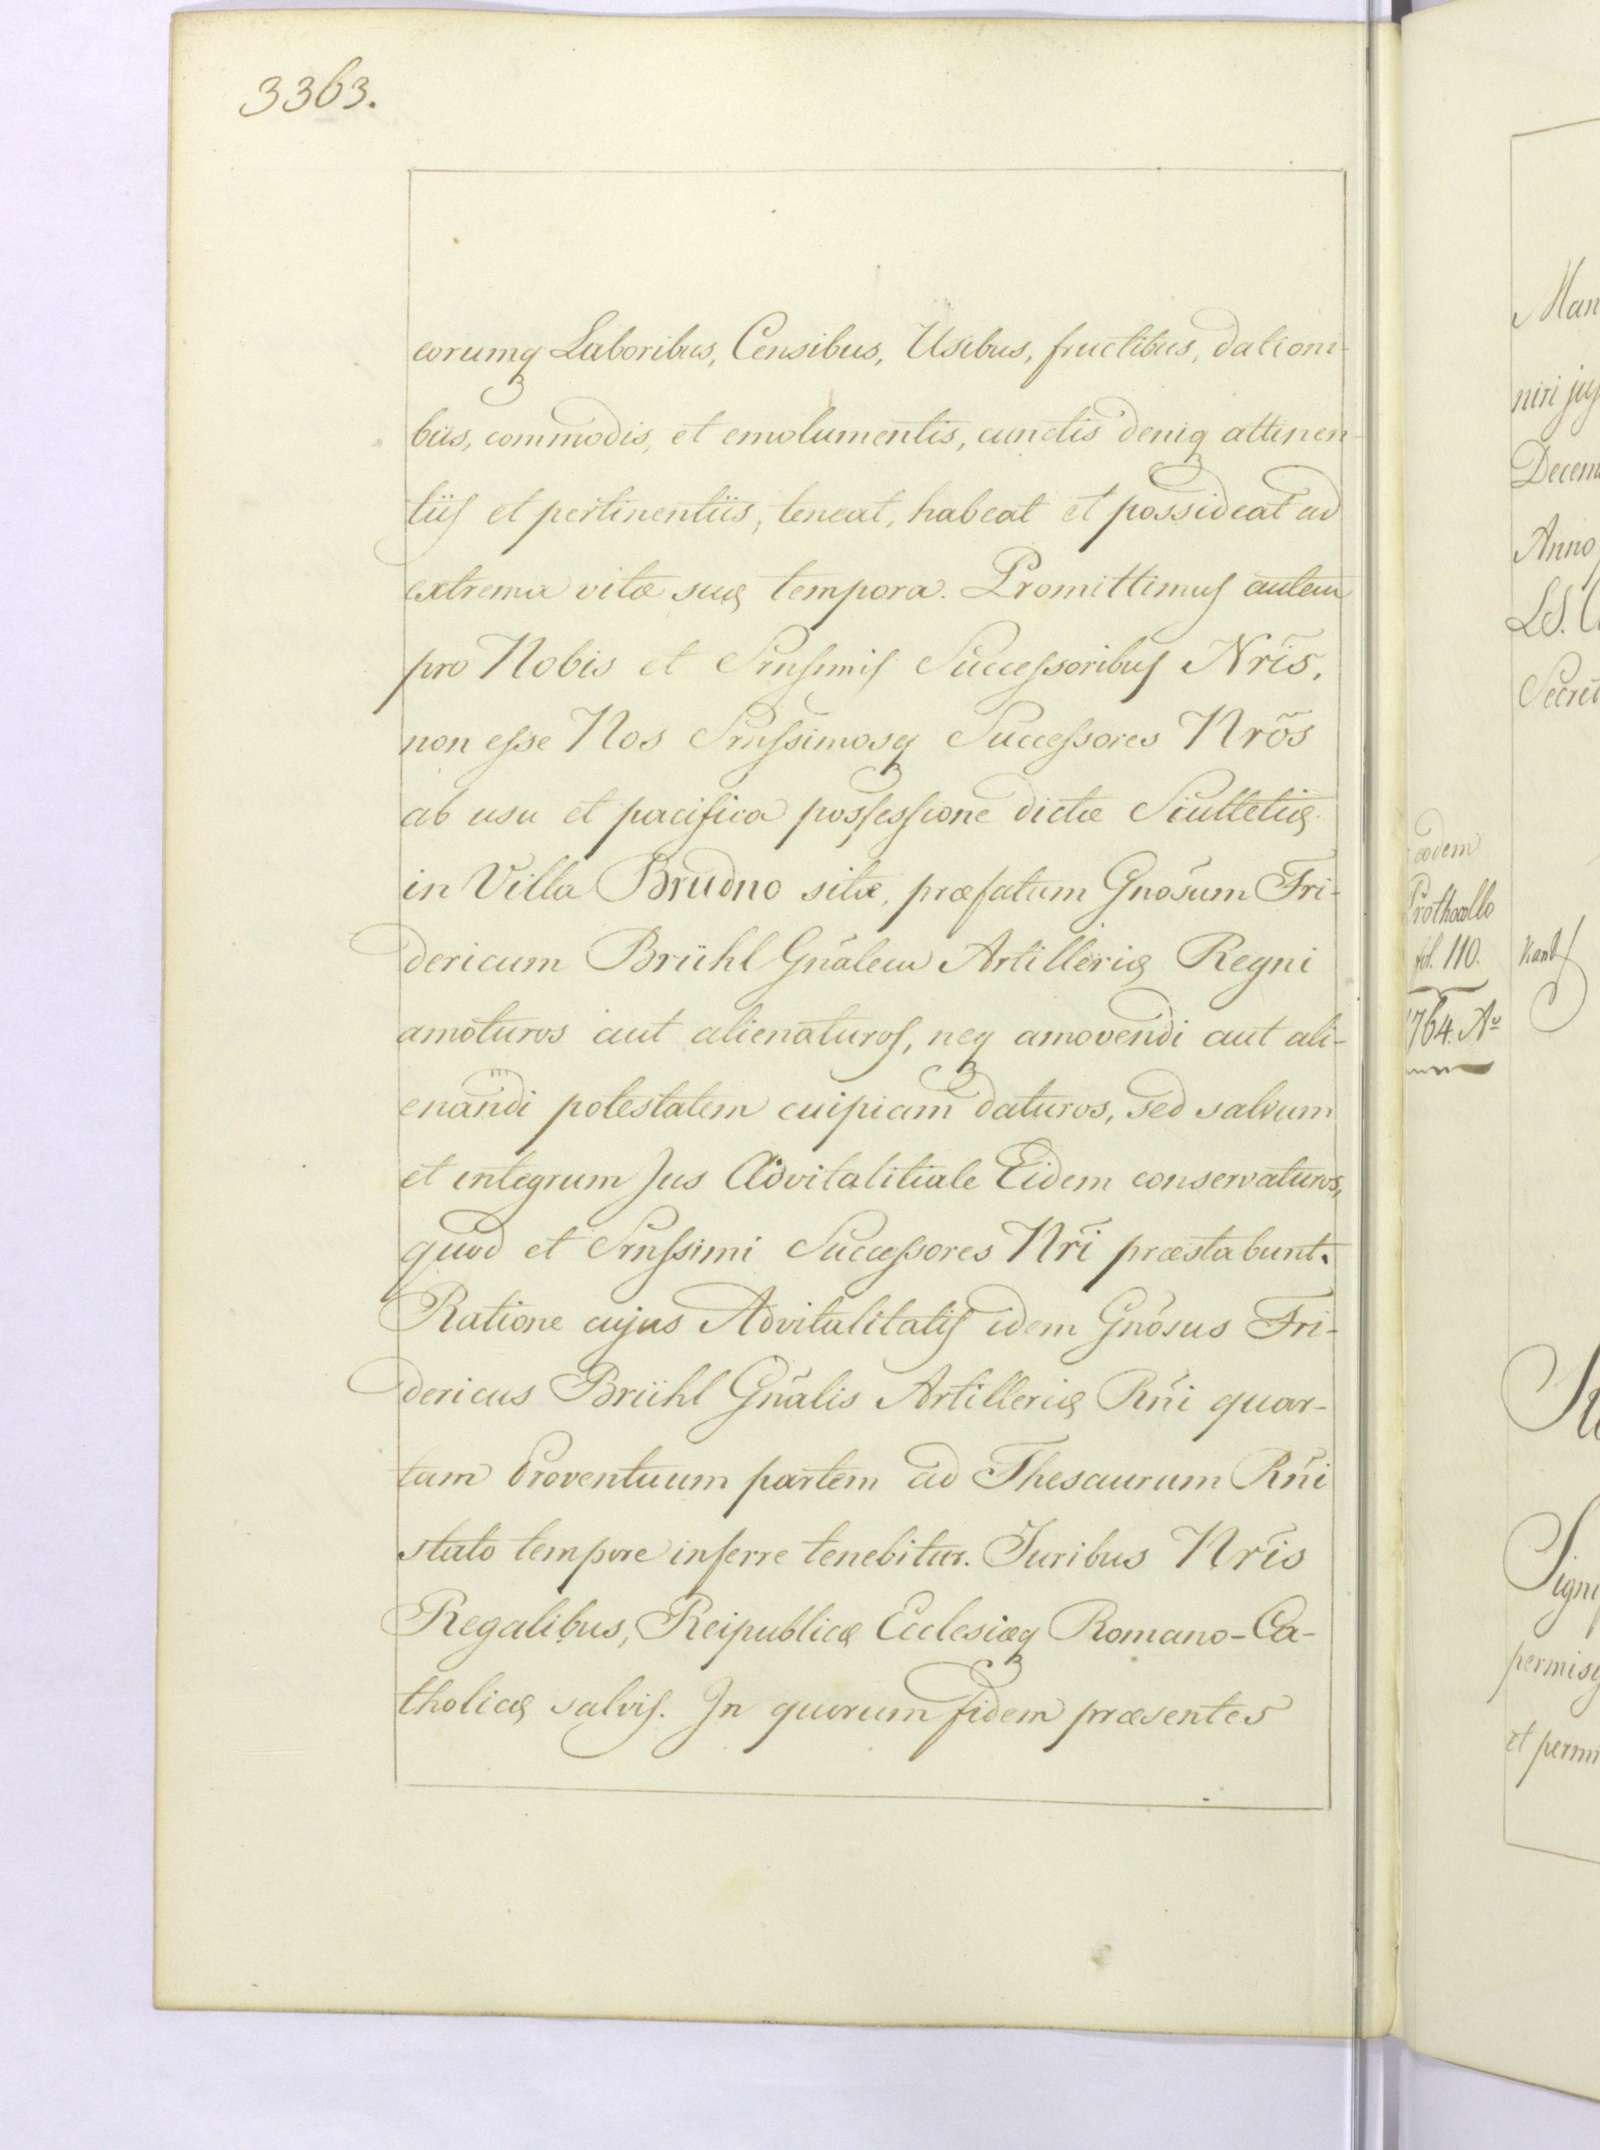 3363.
eorumq Laboribus, Censibus, Usibus, fructibus, dationi-
bus, commodis, et emolumentis, cunctis deniq attinen-
tiis et pertinentiis, teneat, habeat et possideat ad
extrema vitæ suæ tempora. Promittimus autem
pro Nobis et Srnssimis Successoribus Nr̃is,
non esse Nos Srnssimosq Successores Nrõs
ab usu et pacifica possessione dictæ Scultetiæ
in Villa Brudno sitæ, præfatum Gnõsum Fri-
dericum Brühl Gnãlem Artilleriæ Regni
amoturos aut alienaturos, neq amovendi aut ali-
enandi potestatem cuipiam daturos, sed salvum
et integrum Jus Advitalitiale Eidem conservaturos,
quod et Srnssimi Successores Nr̃i præstabunt.
Ratione cujus Advitalitatis idem Gnõsus Fri-
dericus Brühl Gnãlis Artilleriæ Rñi quar-
tam Proventuum partem ad Thesaurum Rñi
stato tempore inferre tenebitur. Juribus Nr̃is
Regalibus, Reipublicæ Ecclesiæq Romano-Ca-
tholicæ salvis. In quorum fidem præsentes
eodem
Prothocollo
fol. 110.
1764. Aº
Man
niri
Decem
Anno
LS.
Secret
Sign
permis
et perm